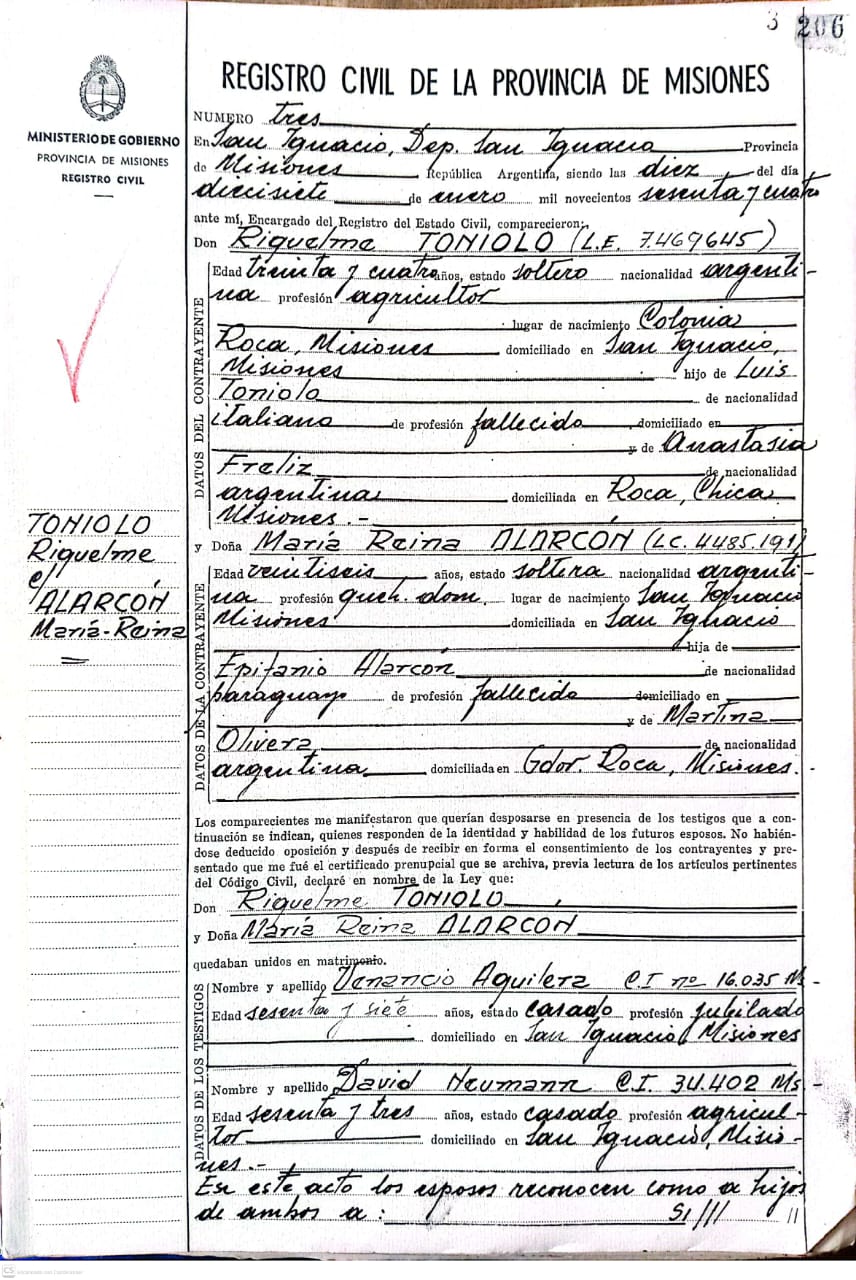 3 206
REGISTRO CIVIL DE LA PROVINCIA DE MISIONES
MINISTERIO DE GOBIERNO
PROVINCIA DE MISIONES
REGISTRO CIVIL
NUMERO tres
En San Ignacio, Dep. San Ignacio Provincia
de Misiones República Argentina, siendo las diez del día
diecisiete de enero mil novecientos sesenta y cuatro
ante mí, Encargado del Registro del Estado Civil, comparecieron:
Don Riquelme TONIOLO (L.E. 7.469645)
DATOS DEL CONTRAYENTE
Edad treinta y cuatro años, estado soltero nacionalidad argenti-
na profesión agricultor
lugar de nacimiento Colonia
Roca, Misiones domiciliado en San Ignacio,
Misiones hijo de Luis
Toniolo de nacionalidad
italiano de profesión fallecido domiciliado en
y de Anastasia
Freliz de nacionalidad
argentina domiciliada en Roca, Chica
Misiones.-
TONIOLO
Riquelme
c/
ALARCÓN
María-Reina
y Doña María Reina ALARCÓN (LC. 4485.191)
DATOS DE LA CONTRAYENTE
Edad veintiseis años, estado soltera nacionalidad argenti-
na profesión queh. dom. lugar de nacimiento San Ignacio
Misiones domiciliada en San Ignacio
hija de
Epifanio Alarcón de nacionalidad
paraguayo de profesión fallecido domiciliado en
y de Martina
Olivera de nacionalidad
argentina domiciliada en Gdor. Roca, Misiones.-
Los comparecientes me manifestaron que querían desposarse en presencia de los testigos que a con-
tinuación se indican, quienes responden de la identidad y habilidad de los futuros esposos. No habién-
dose deducido oposición y después de recibir en forma el consentimiento de los contrayentes y pre-
sentado que me fué el certificado prenupcial que se archiva, previa lectura de los artículos pertinentes
del Código Civil, declaré en nombre de la Ley que:
Don Riquelme TONIOLO
y Doña María Reina ALARCON
quedaban unidos en matrimonio.
DATOS DE LOS TESTIGOS
Nombre y apellido Venancio Aguilera C.I nº 16.035 Ms-
Edad sesenta y siete años, estado casado profesión jubilado
domiciliado en San Ignacio, Misiones
Nombre y apellido David Neumann C.I. 34.402 Ms.-
Edad sesenta y tres años, estado casado profesión agricul-
tor domiciliado en San Ignacio, Misio-
nes.-
En este acto los esposos reconocen como a hijos
de ambos a:
CS Escaneado con CamScanner